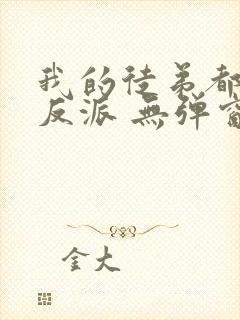 我的徒弟都
反派 無弹窗
金大